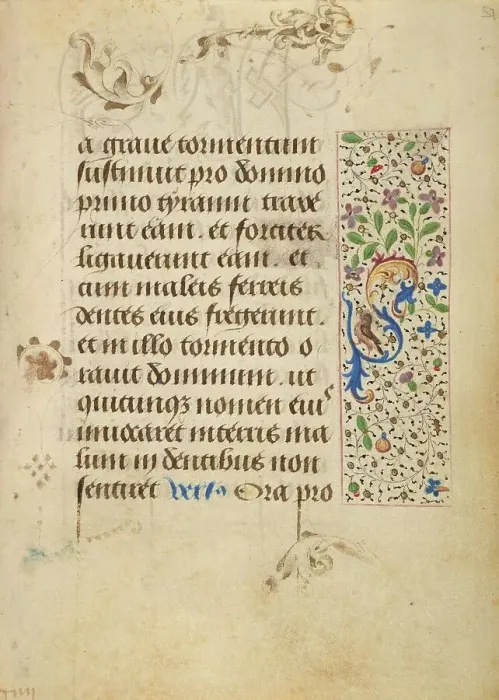 a graue tormentum
sustinuit pro domino
primo tyranni traxe
runt eam. et fortiter
ligauerunt eam. et
cum maleis ferreis
dentes eius fregerunt.
et in illo tormento o
rauit dominum. ut
quicunqꝫ nomen eiuˢ
inuocaret in terris ma
lum in dentibus non
sentiret Ora pro